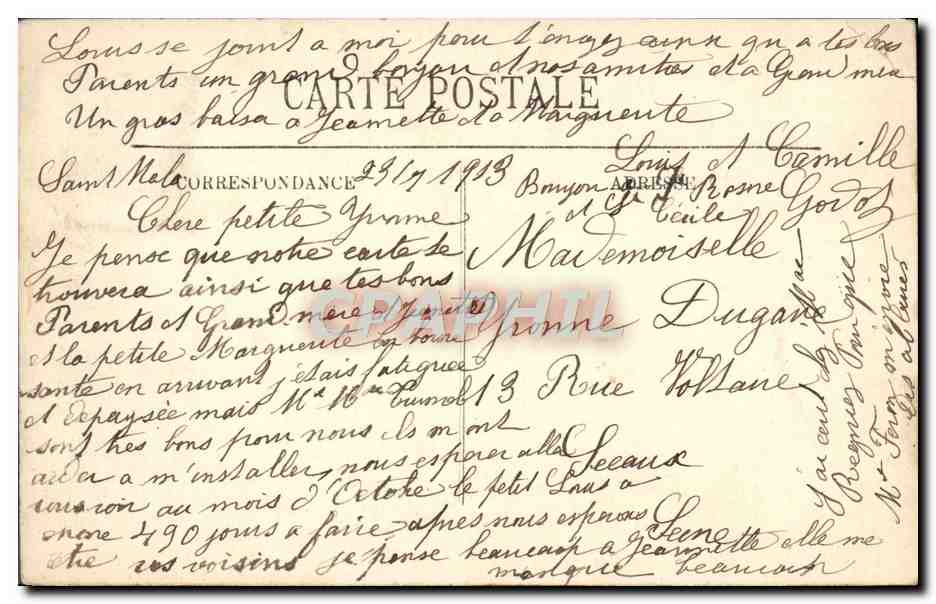 Louis se joint a moi pour t'envoyer ainsi qu a tes bons
Parents un grand bonjour et nos amities et a Grand mere
CARTE POSTALE
Un gros baiser a Jeannette et a Marguerite
Louis et Camille
Godot
Saint Malo
CORRESPONDANCE
23/7 1913
ADRESSE
Bonjour a Rosne
et Cécile
Chere petite Yvonne
Je pense que notre carte te
trouvera ainsi que tes bons
Parents et Grand mere et Jeannette
et la petite Marguerite en bonne
santé en arrivant j etais fatiguée
et depaysée mais Mr Mme
sont tres bons pour nous ils m ont
aider a m'installer nous esperer aller
vous voir au mois d'Octobre le petit Louis a
encore 490 jours a faire apres nous esperons
etre vos voisins je pense beaucoup a Jeannette elle me
manque beaucoup
Mademoiselle
Yvonne Dugavé
13 Rue Voltaire
Sceaux
Seine
CPAPHIL
J'ai ecrit
Mr Feron m'ecrire